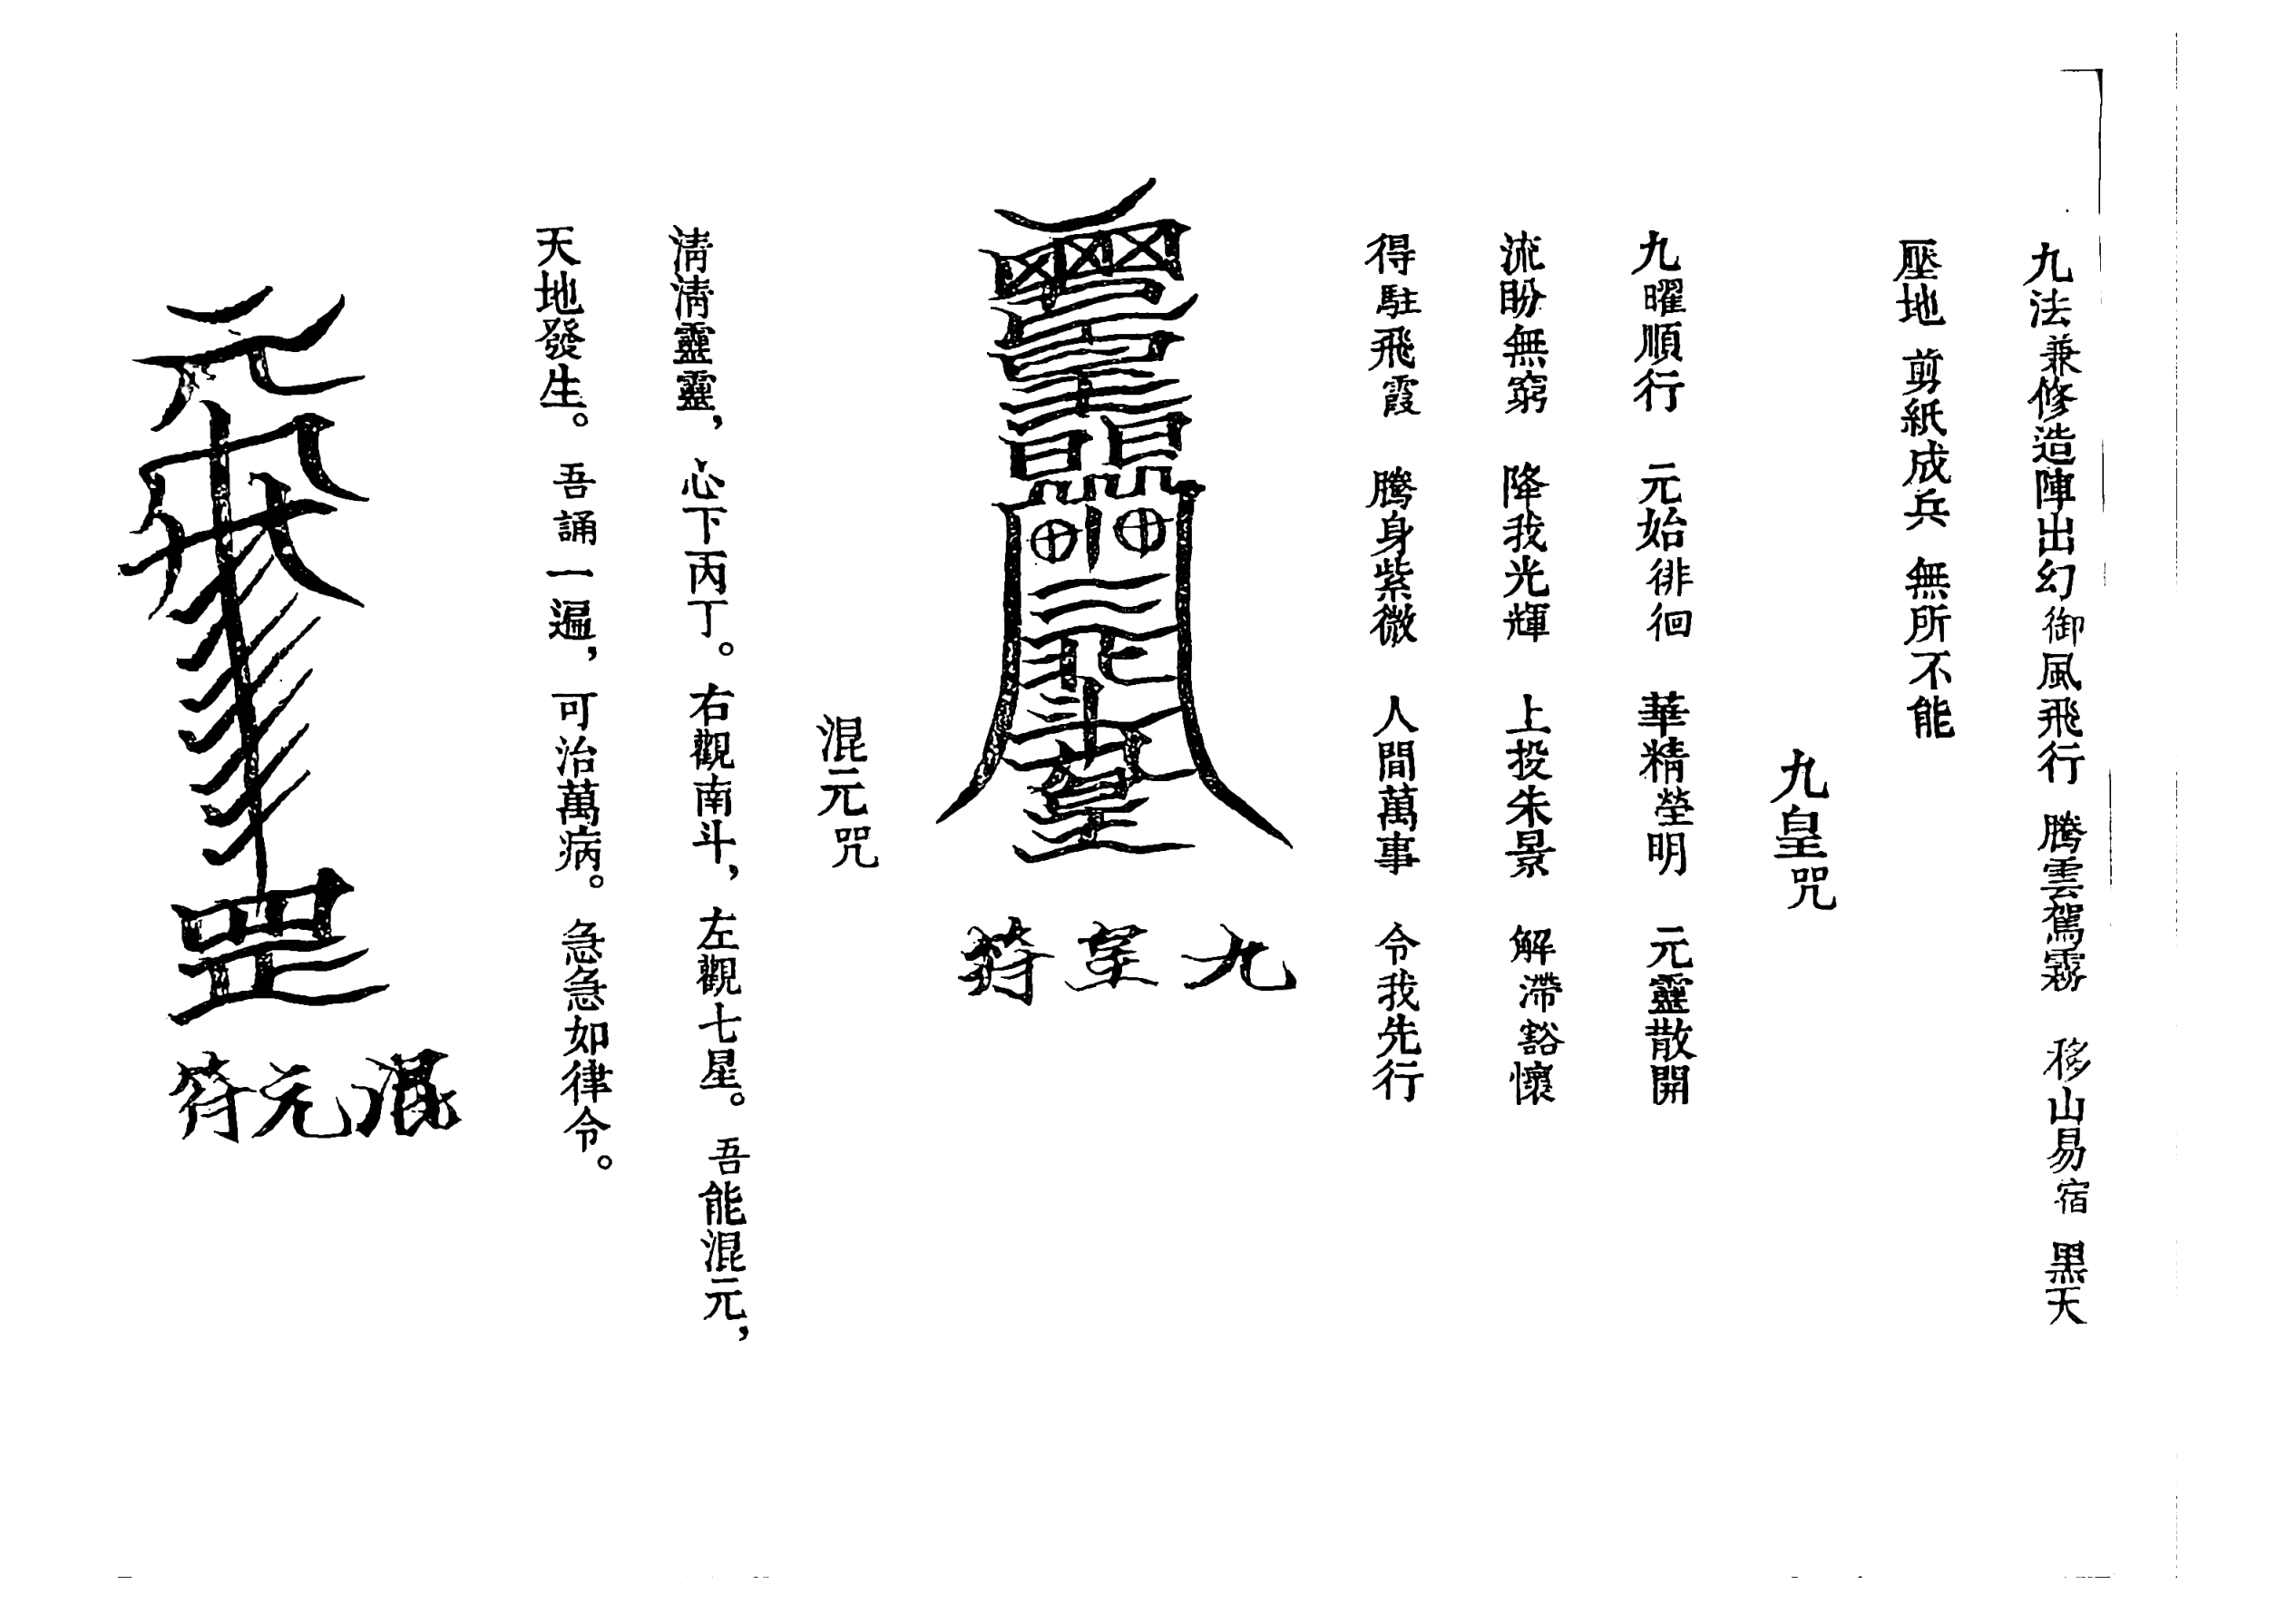 九法兼修造陣出幻御風飛行 騰雲駕霧 移山易宿 黑天
壓地 剪紙成兵 無所不能
九皇咒
九曜順行 元始徘徊 華精瑩明 元靈散開
流盼無窮 降我光輝 上投朱景 解滯豁懷
得駐飛霞 騰身紫微 人間萬事 令我先行
九皇符
混元咒
清清靈靈，心下丙丁。右觀南斗，左觀七星。吾能混元，
天地發生。吾誦一遍，可治萬病。急急如律令。
混元符